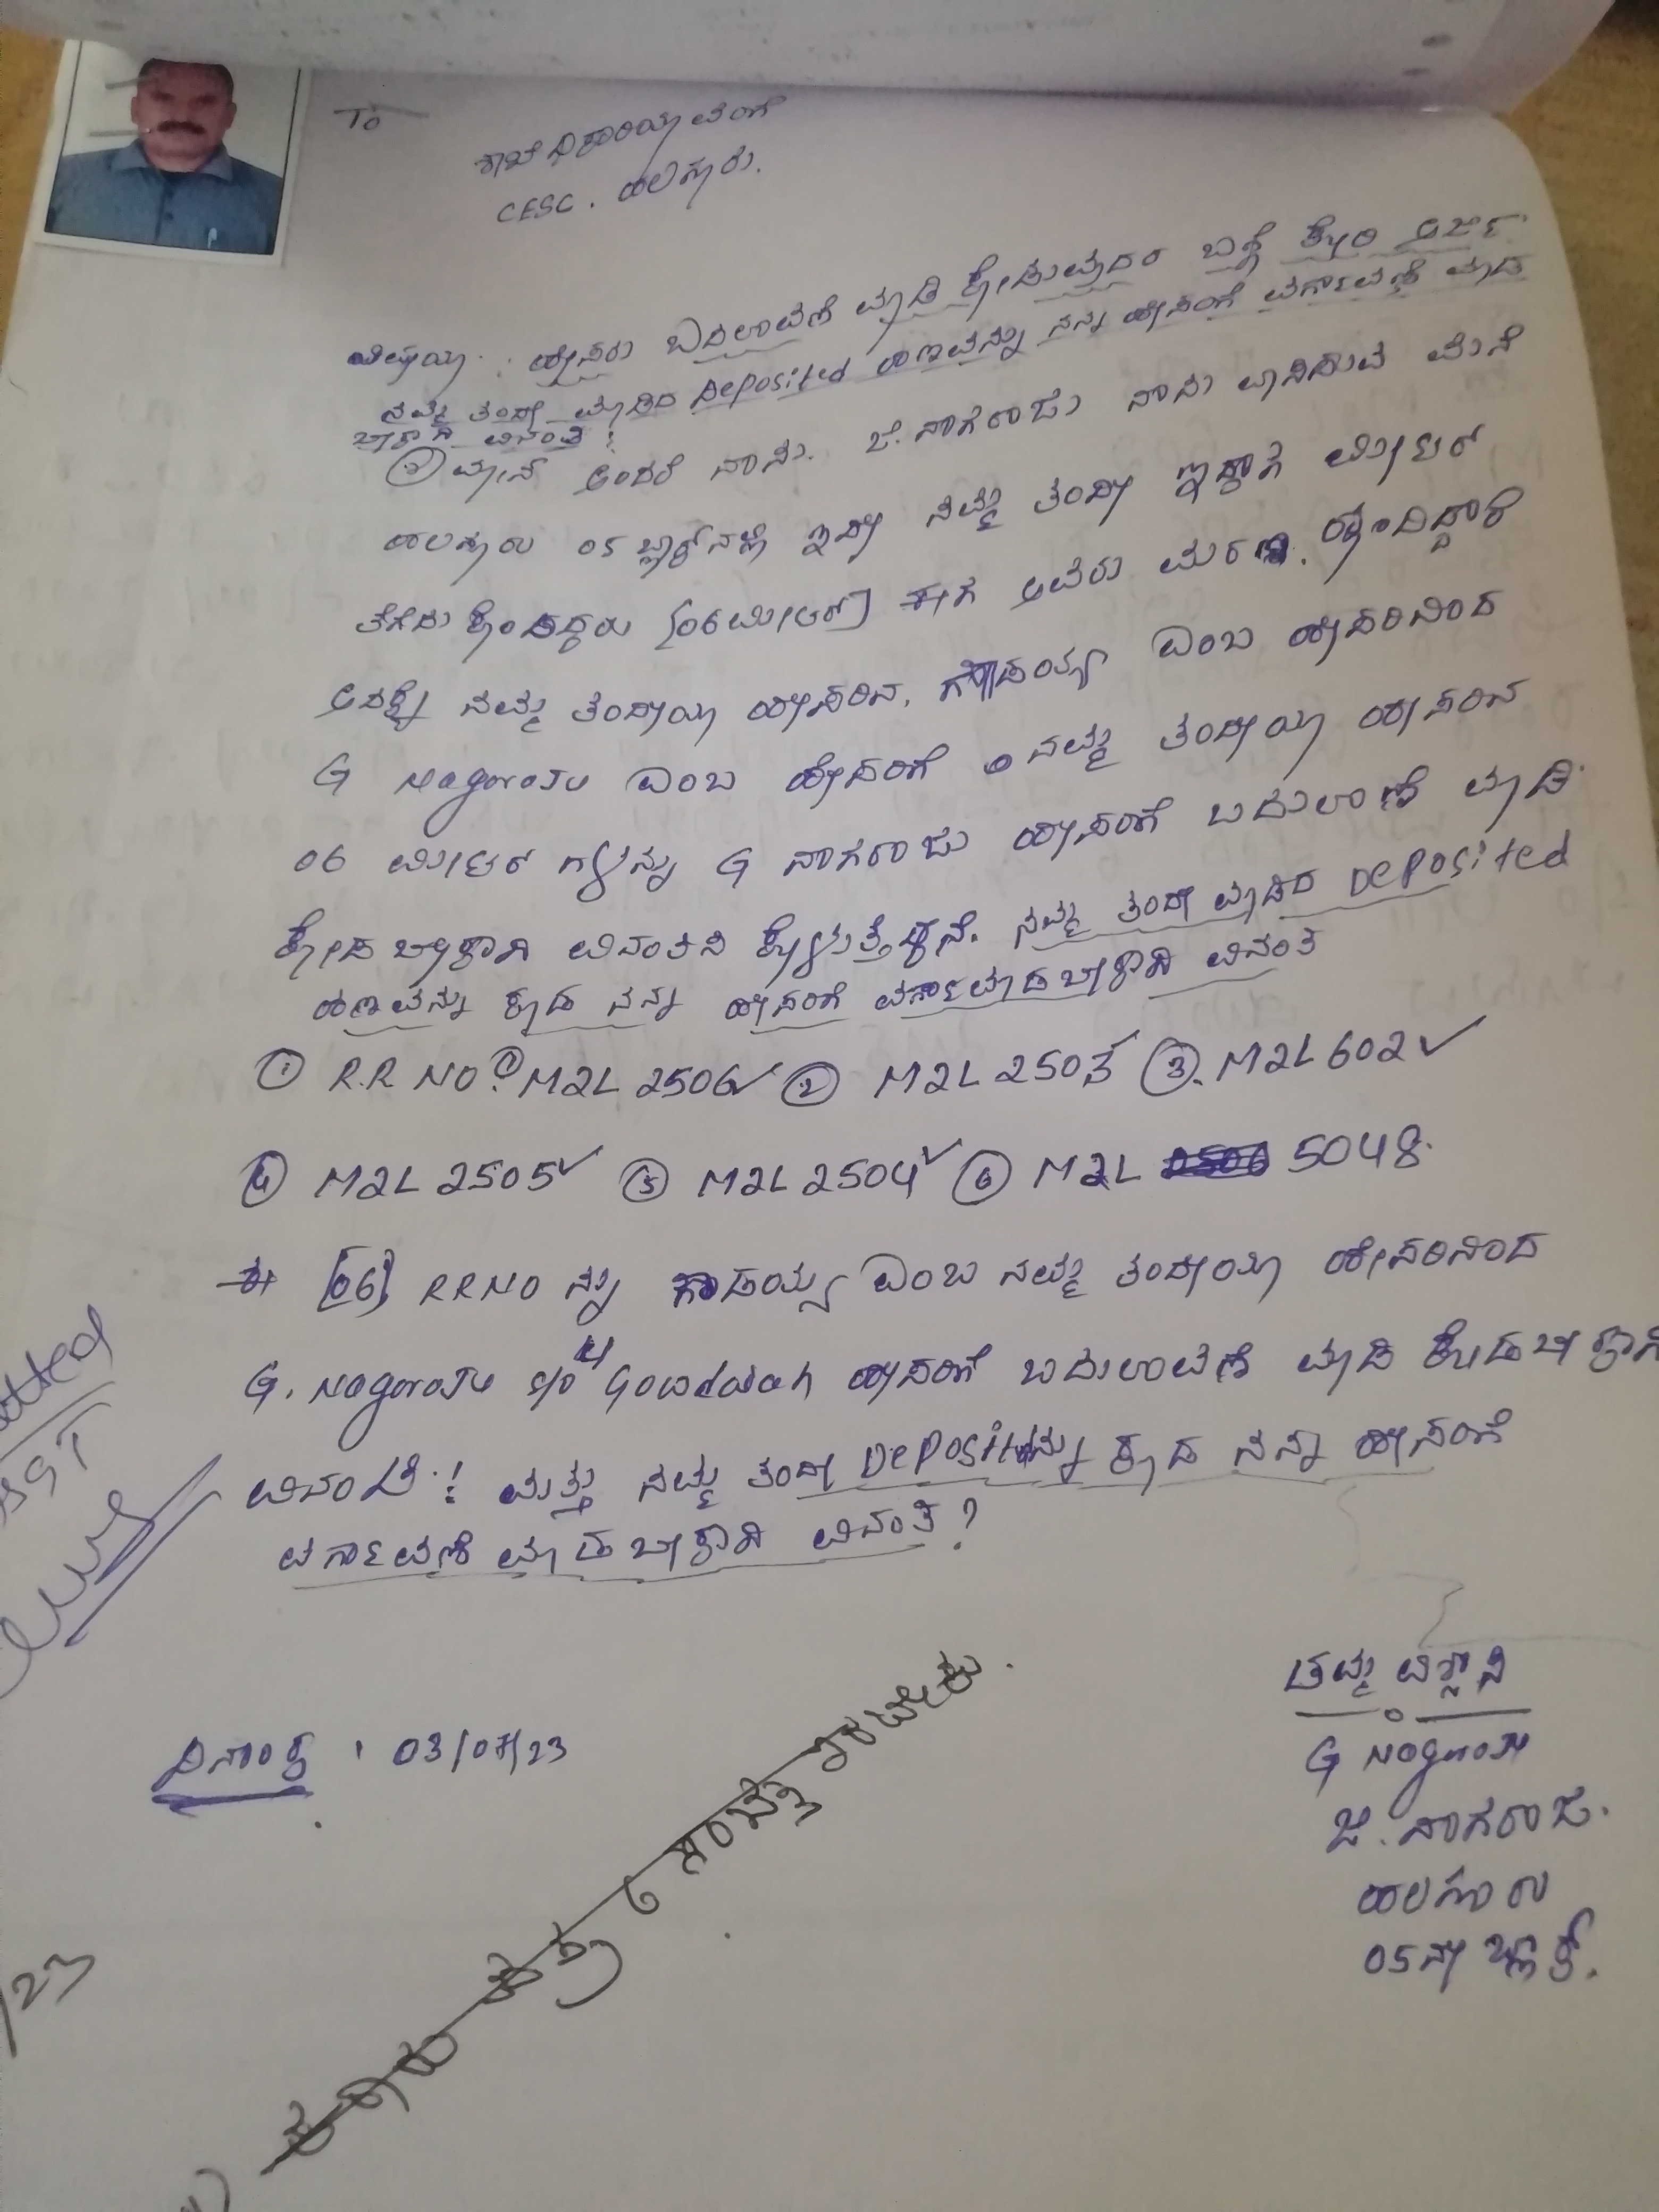 To
ಶಾಖೆ ಧಿಕಾರಿಯ ವರಿಗೆ
CESC. ಹಲಗೂರು.
ವಿಷಯ: ಹೇಸರು ಬದಲಾವಣೆ ಮಾಡಿ ಕೋಡುವುದರ ಬಗ್ಗೆ ಕೋರಿ ಅರ್ಜಿ
ನಮ್ಮ ತಂದೇ ಮಾಡಿದ Deposited ಹಣವನ್ನು ನನ್ನ ಹೇಸರಿಗೆ ವರ್ಗಾವಣೆ ಮಾಡ
ಬೇಕಾಗಿ ವಿನಂತಿ:
ಅಂದರೆ ನಾನು. ಜಿ. ನಾಗರಾಜು ನಾನು ವಾಸಿಸುವ ಮನೆ
ಹಲಗೂರು 05 ಬ್ಲಾಕ್ ನಲ್ಲಿ ಇದೇ ನಮ್ಮ ತಂದೇ ಇದ್ದಾಗ ಮೀಟರ್
ತೆಗೆದು ಕೊಂಡಿದ್ದರು [06 ಮೀಟರ್] ಈಗ ಅವರು ಮರಣ. ಹೊಂದಿದ್ದಾರೆ
ಅದಕ್ಕೆ ನಮ್ಮ ತಂದೇಯ ಹೇಸರಿನ. ಗೌಡಯ್ಯ ಎಂಬ ಹೇಸರಿನಿಂದ
G Nagaraju ಎಂಬ ಹೇಸರಿಗೆ ನಮ್ಮ ತಂದೇಯ ಹೇಸರಿನ
06 ಮೀಟರ್ ಗಳನ್ನು G ನಾಗರಾಜು ಹೇಸರಿಗೆ ಬದುಲಾಣೆ ಮಾಡಿ
ಕೋಡ ಬೇಕಾಗಿ ವಿನಂತಿಸಿ ಕೊಳ್ಳುತ್ತೆದ್ದನೆ. ನಮ್ಮ ತಂದೇ ಮಾಡಿದ Deposited
ಹಣವನ್ನು ಕೂಡ ನನ್ನ ಹೇಸರಿಗೆ ವರ್ಗಾವಮಾಡ ಬೇಕಾಗಿ ವಿನಂತಿ
① R.R NO: ① M2L 2506 ✓ ② M2L 2503 ✓ ③. M2L 602 ✓
④ M2L 2505 ✓ ⑤ M2L 2504 ✓ ⑥ M2L 5048.
ಈ [06] RRNO ನ್ನು ಗೌಡಯ್ಯ ಎಂಬ ನಮ್ಮ ತಂದೇಯ ಹೇಸರಿನಿಂದ
G. Nagaraju S/o Gowdaiah ಹೇಸರಿಗೆ ಬದುಲಾವಣೆ ಮಾಡಿ ಕೊಡಬೇಕಾಗಿ
ವಿನಂತಿ:! ಮತ್ತು ನಮ್ಮ ತಂದೇ Depositನ್ನು ಕೂಡ ನನ್ನ ಹೇಸರಿಗೆ
ವರ್ಗಾವಣೆ ಮಾಡಬೇಕಾಗಿ ವಿನಂತಿ?
ತಮ್ಮ ವಿಶ್ವಾಸಿ
G Nagaraju
ಜಿ. ನಾಗರಾಜು.
ಹಲಗೂರು
05ನೇ ಬ್ಲಾಕ್.
ದಿನಾಂಕ : 03/07/23